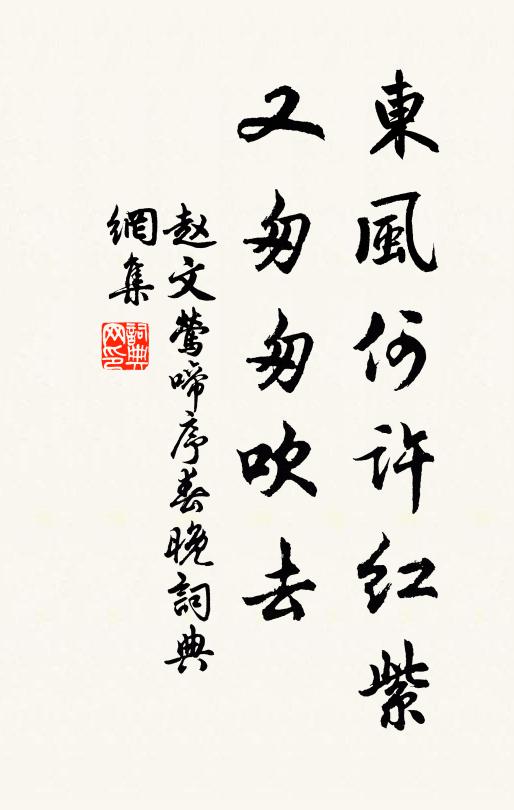 東風何許紅紫
又匆匆吹去
赵文鶯啼序春晚詞典
網集
詞典網印